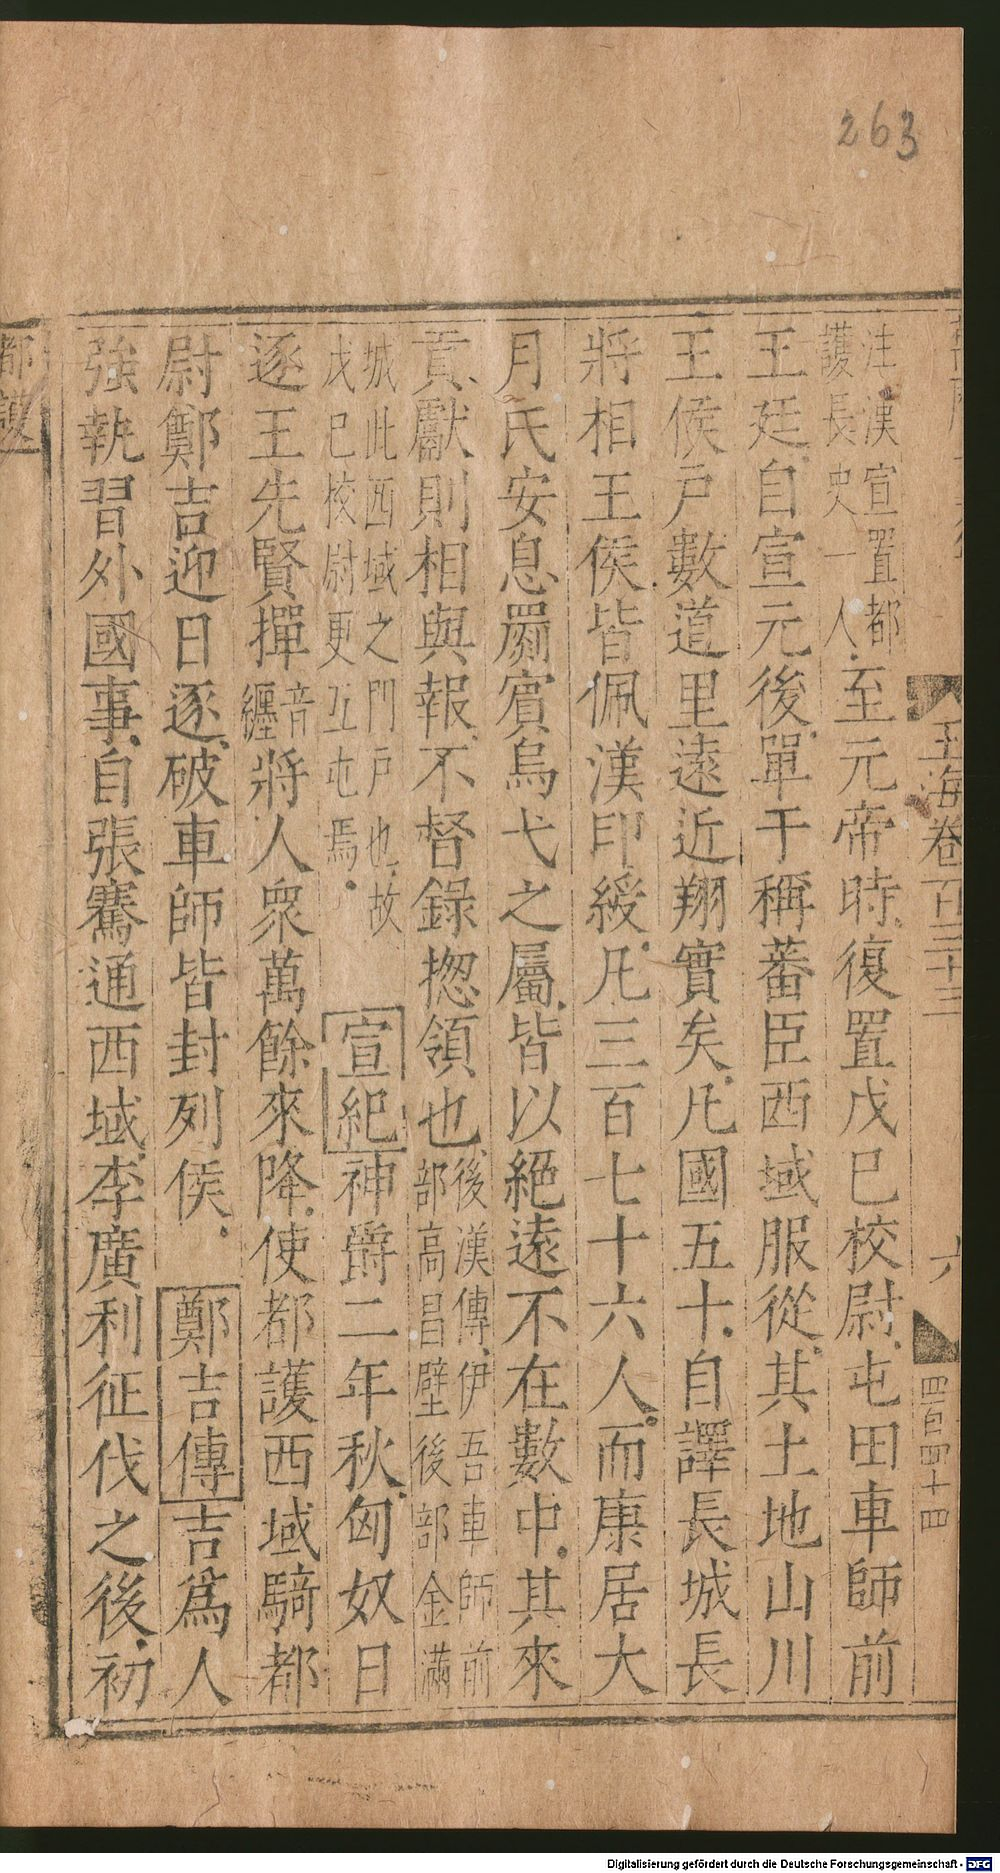 263
玉海卷百三十三
六
注漢宣置都
護長史一人至元帝時復置戊巳校尉屯田車師前
王廷自宣元後單于稱蕃臣西域服從其土地山川
王侯戶數道里遠近翔實矣凡國五十自譯長城長
將相王侯皆佩漢印綬凡三百七十六人而康居大
月氏安息罽賓烏弋之屬皆以絕遠不在數中其來
貢獻則相與報不督錄揔領也後漢傳伊吾車師前
部高昌壁後部金滿
城此西域之門戶也故
戊巳校尉更互屯焉宣紀神爵二年秋匈奴日
逐王先賢撣音
纏將人衆萬餘來降使都護西域騎都
尉鄭吉迎日逐破車師皆封列侯鄭吉傳吉爲人
強執習外國事自張騫通西域李廣利征伐之後初
都護
Digitalisierung gefördert durch die Deutsche Forschungsgemeinschaft - DFG